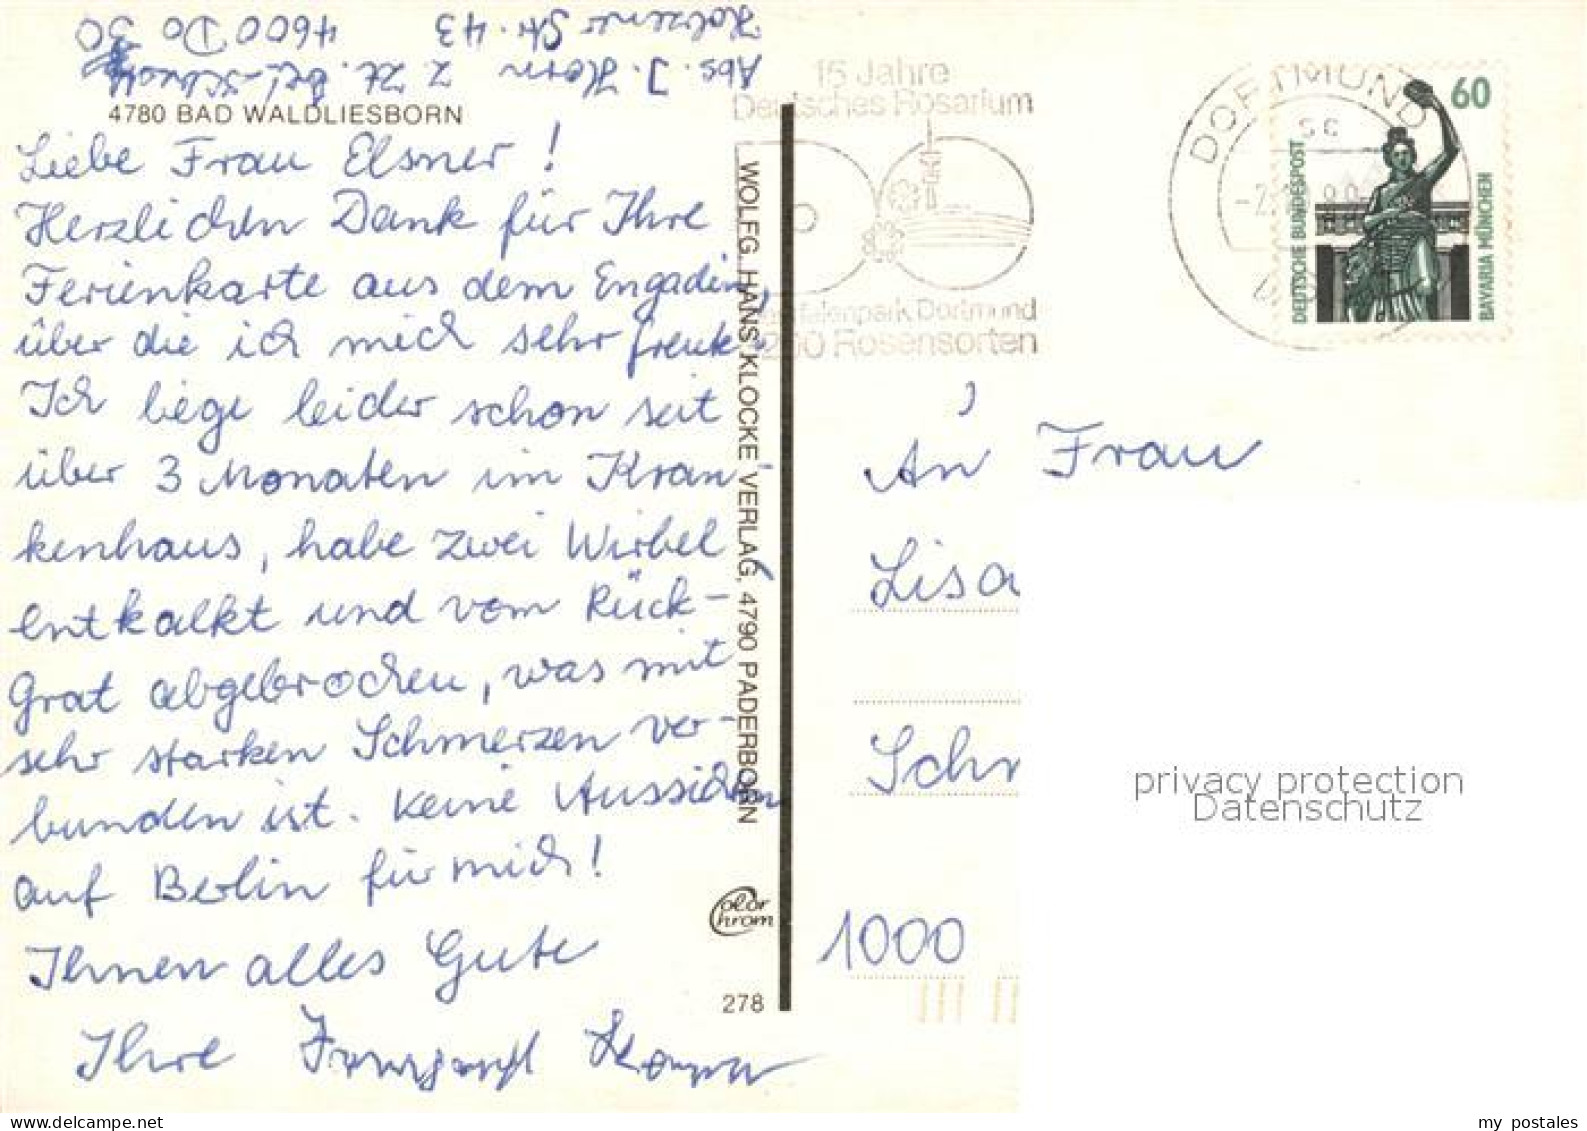 Abs. I. Horn z. Zt.
Holzener Str. 43 4600 Do 30
4780 BAD WALDLIESBORN
Liebe Frau Elsner!
Herzlichen Dank für Ihre
Ferienkarte aus dem Engadin,
über die ich mich sehr freute.
Ich liege leider schon seit
über 3 Monaten im Kran-
kenhaus, habe zwei Wirbel
entkalkt und vom Rück-
Grat abgebrochen, was mit
sehr starken Schmerzen ver-
bunden ist. Keine Aussichten
auf Berlin für mich!
Ihnen alles Gute
Ihre
WOLFG. HANS KLOCKE VERLAG, 4790 PADERBORN
Color
Chrom
278
15 Jahre
Deutsches Rosarium
Westfalenpark Dortmund
Rosensorten
DORTMUND
60
DEUTSCHE BUNDESPOST
BAVARIA MÜNCHEN
An Frau
Lisa
Schm
1000
privacy protection
Datenschutz
delcampe.net
my postales